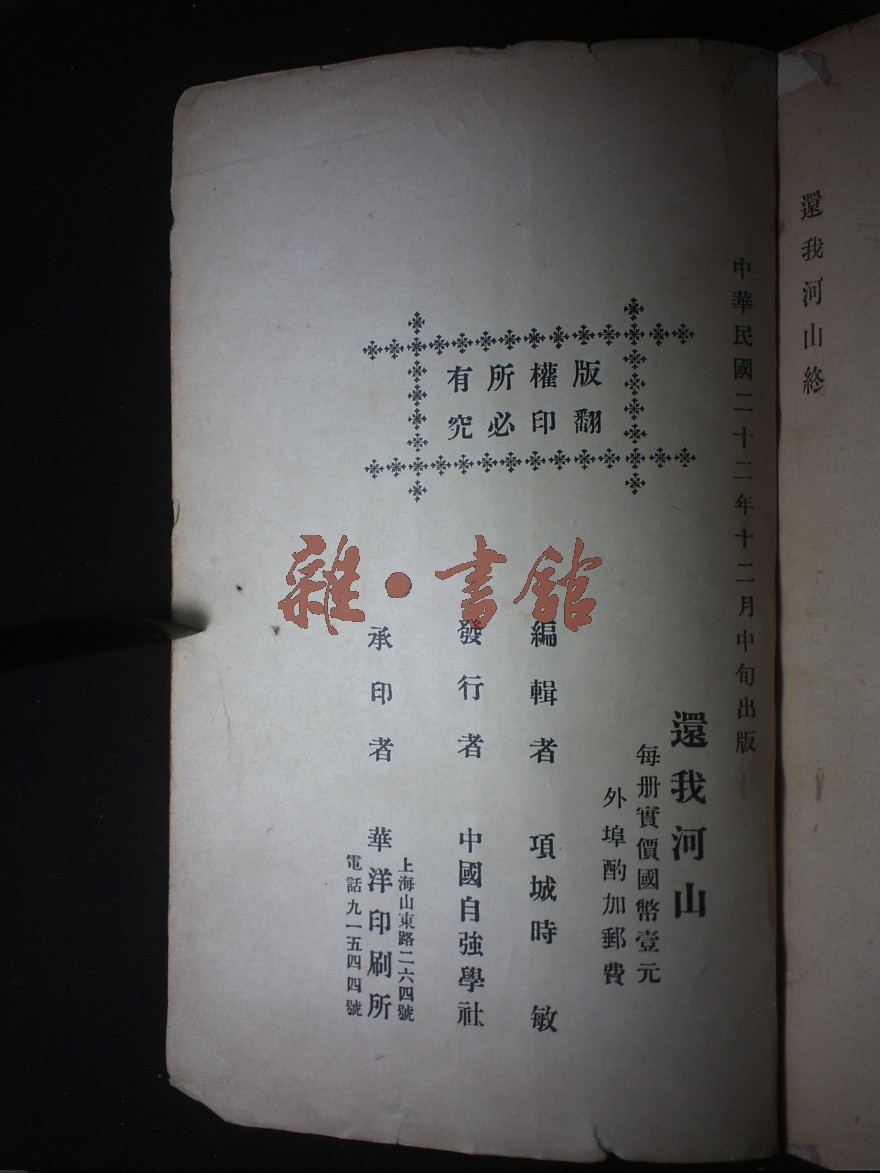 還我河山終
中華民國二十二年十二月中旬出版
還我河山
每册實價國幣壹元
外埠酌加郵費
版權所有
翻印必究
編輯者 項城時敏
發行者 中國自強學社
承印者 華洋印刷所
上海山東路二六四號
電話九一五四四號
雜·書館